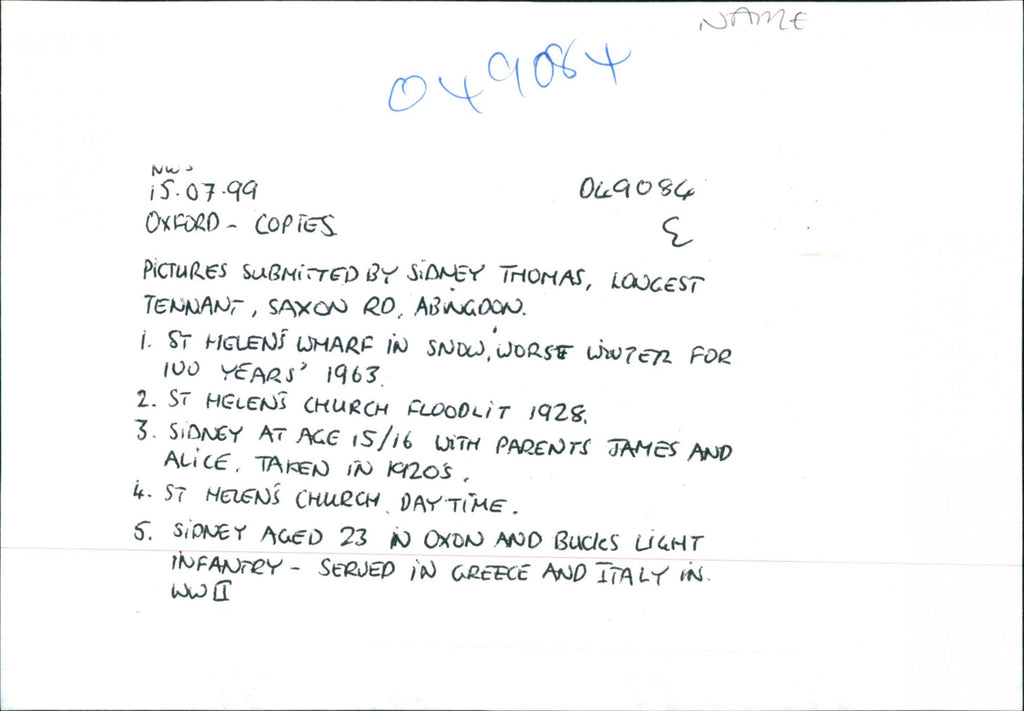 NAME
049084
NW
15.07.99
049084
OXFORD - COPIES
PICTURES SUBMITTED BY SIDNEY THOMAS, LONGEST
TENNANT, SAXON RD, ABINGDON.
1. ST HELEN'S WHARF IN SNOW, 'WORSE WINTER FOR
100 YEARS' 1963.
2. ST HELEN'S CHURCH FLOODLIT 1928.
3. SIDNEY AT AGE 15/16 WITH PARENTS JAMES AND
ALICE. TAKEN IN 1920'S.
4. ST HELEN'S CHURCH DAYTIME.
5. SIDNEY AGED 23 IN OXON AND BUCKS LIGHT
INFANTRY - SERVED IN GREECE AND ITALY IN
WW II